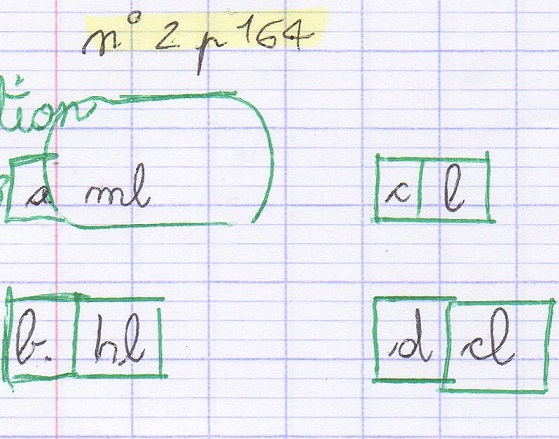 n° 2 p 164
tion
a ml
c l
b. hl
d cl